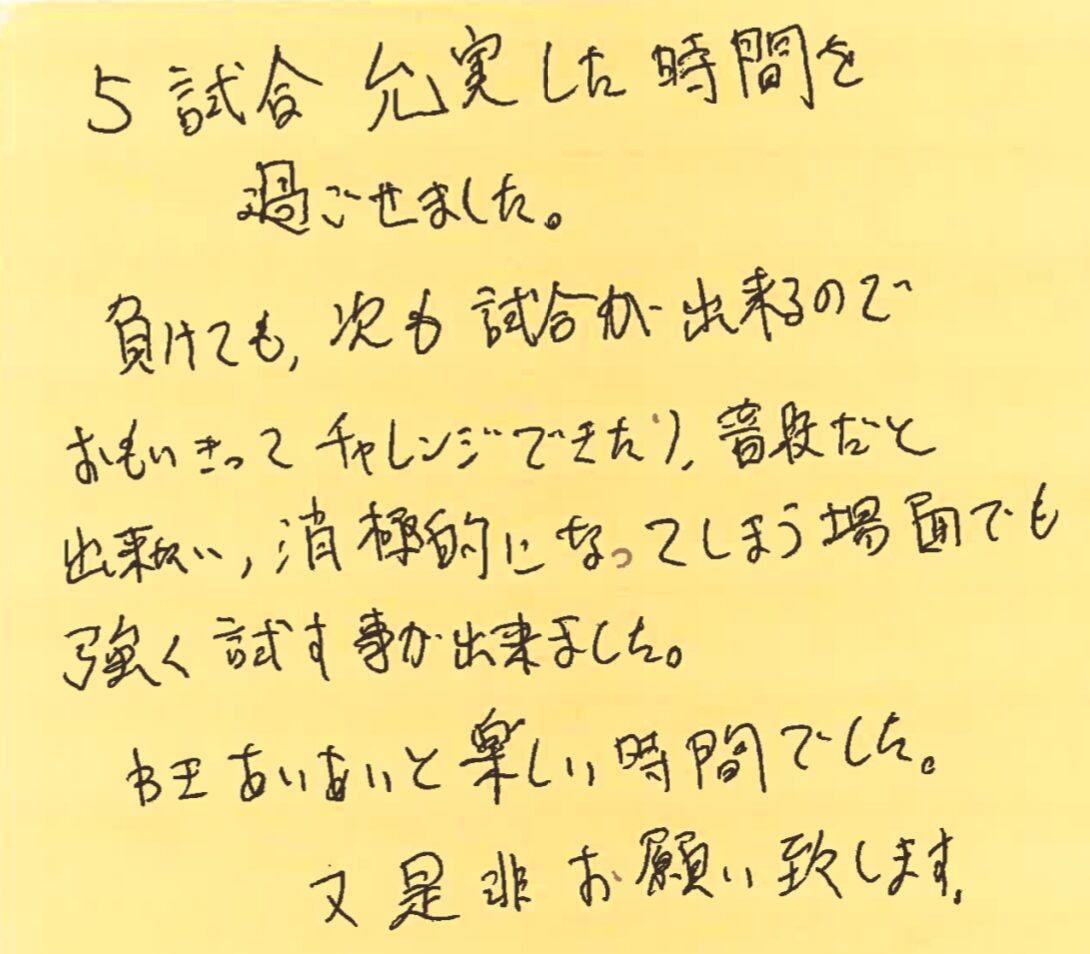 5試合 充実した時間を
過ごせました。
負けても、次も試合が出来るので
おもいきってチャレンジできたり、普段だと
出来ない、消極的になってしまう場面でも
強く試す事が出来ました。
あいあいと楽しい時間でした。
又是非お願い致します。